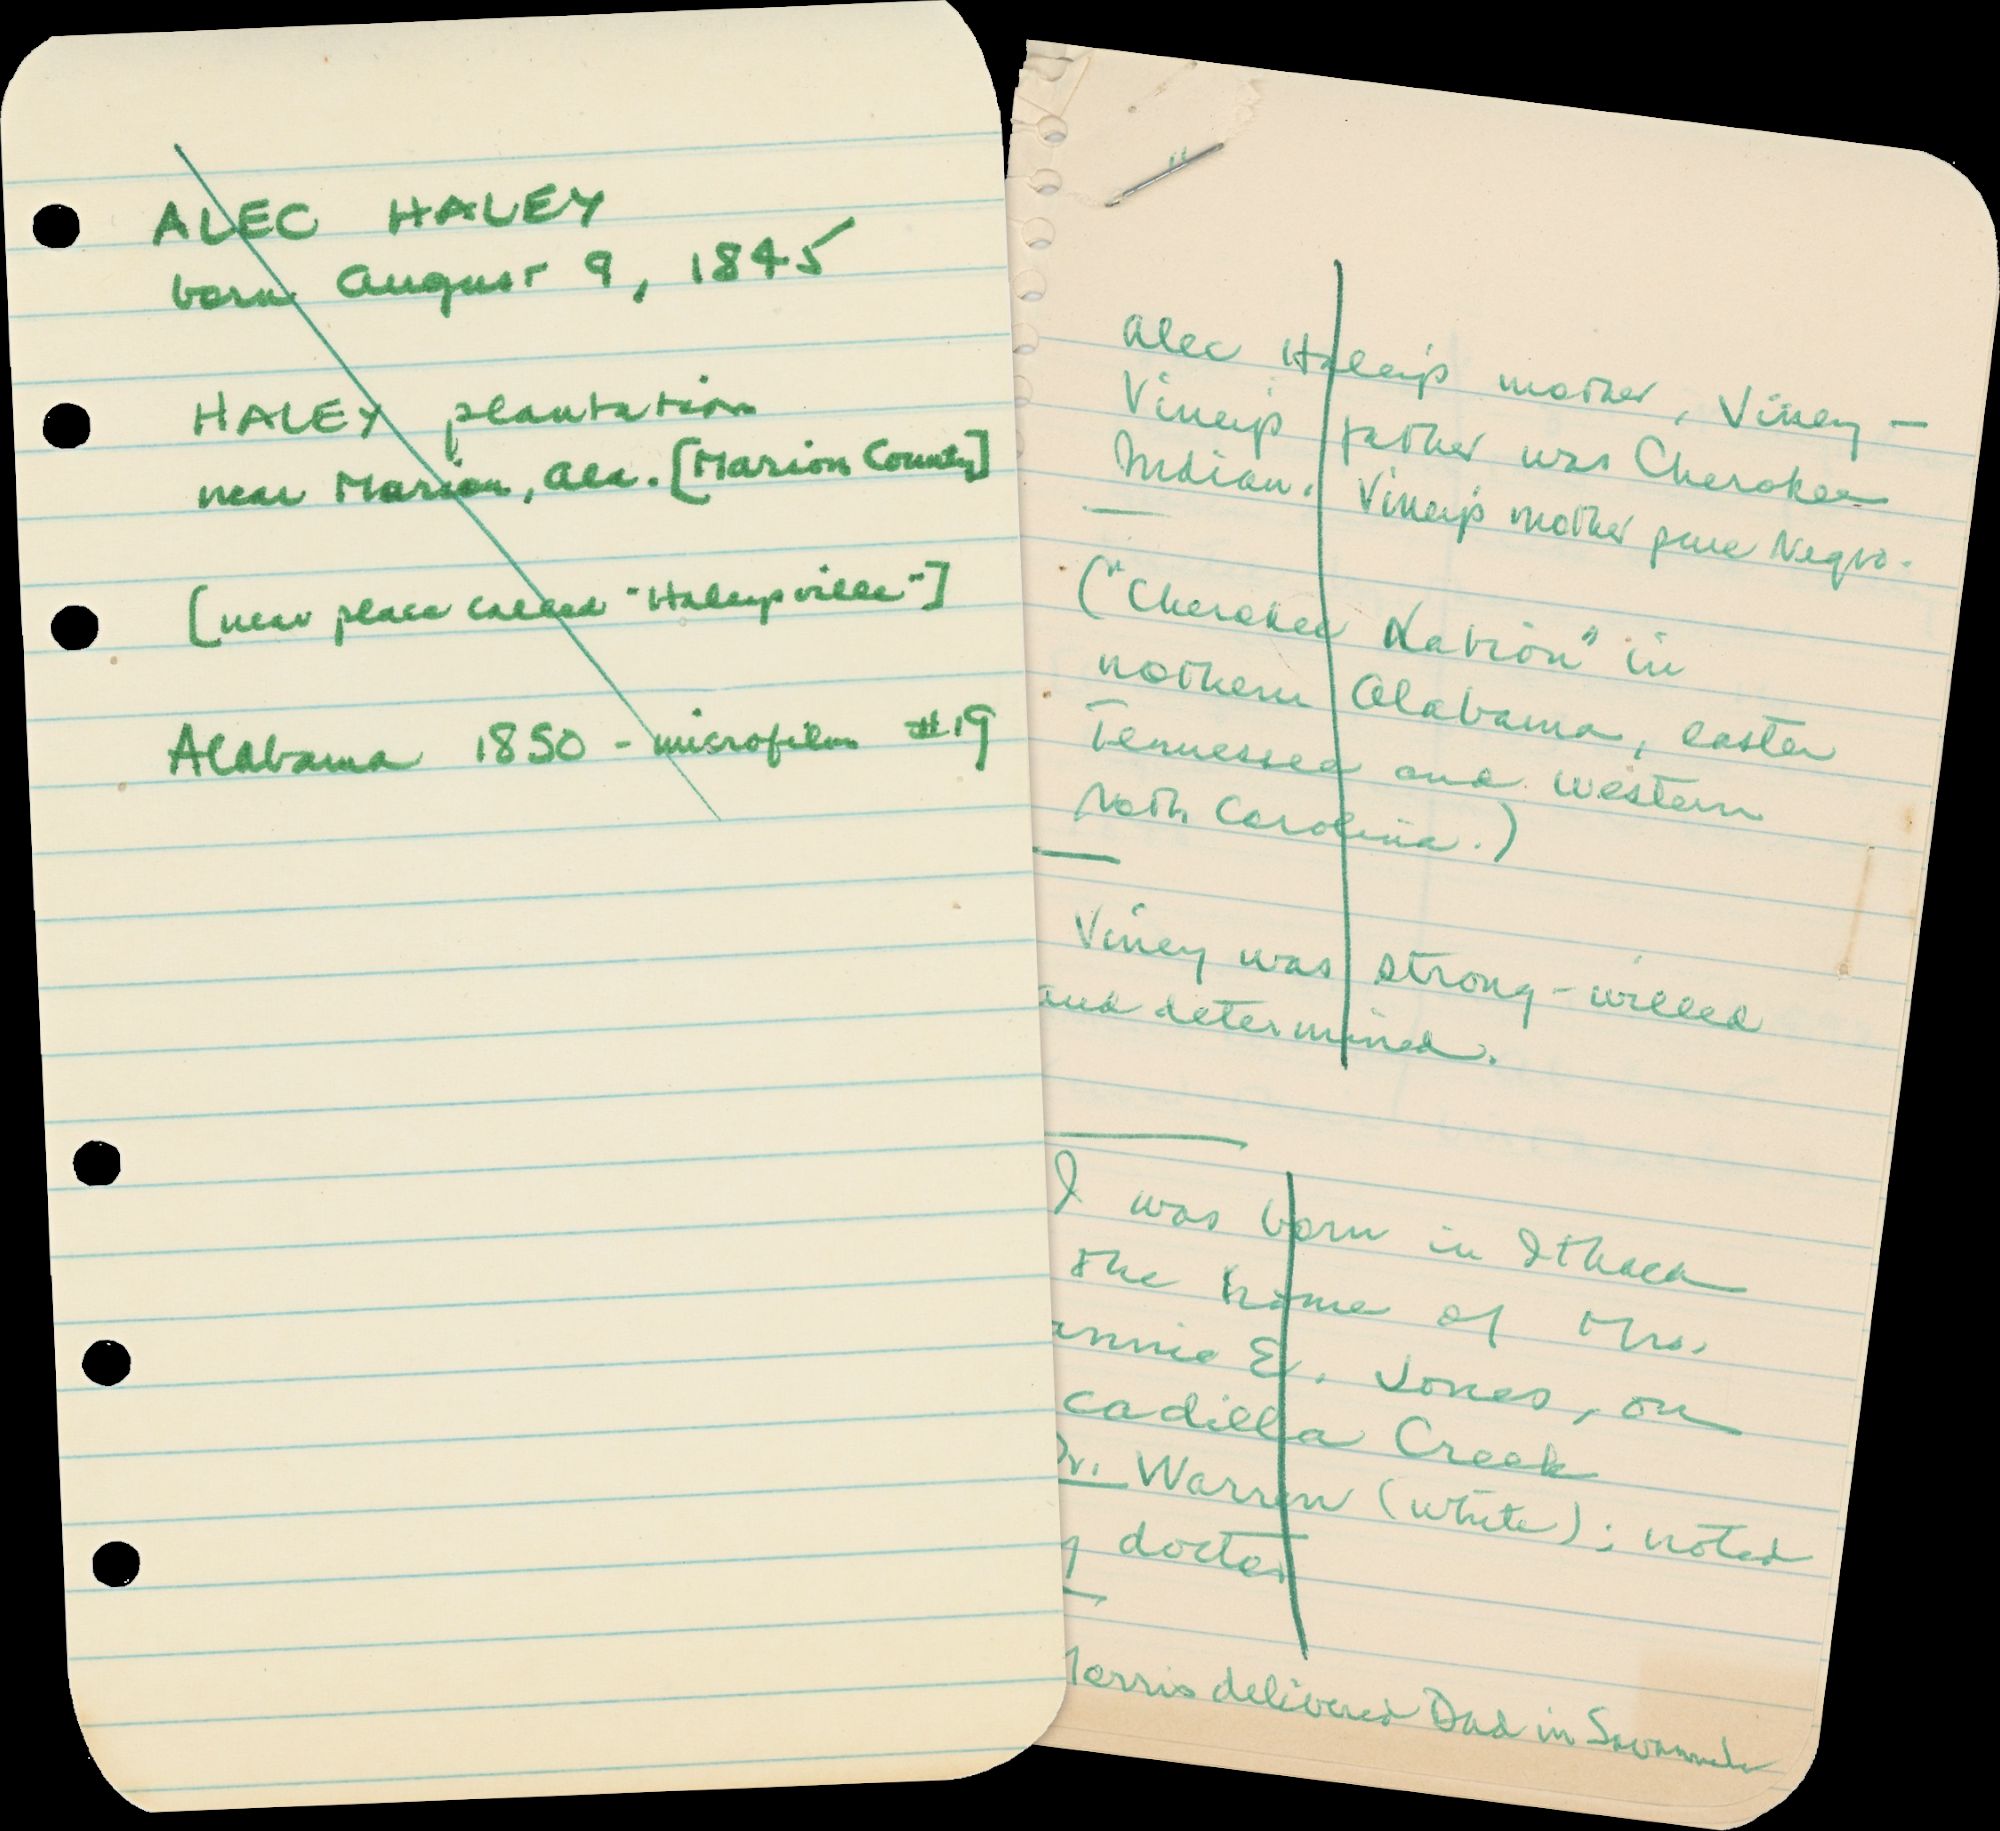 ALEC HALEY
born August 9, 1845
HALEY plantation
near Marion, Ala. [Marion County]
[near place called "Haleysville"]
Alabama 1850 - microfilm #19
"
Alec Haley's mother, Viney -
Viney's father was Cherokee
Indian. Viney's mother pure Negro.
("Cherokee Nation" in
northern Alabama, easter
Tennessee and western
North Carolina.)
Viney was strong-willed
and determined.
I was born in Ithaca
the home of Mrs.
annie E. Jones, on
cadilla Creek
Dr. Warren (white); noted
y doctor
Morris delivered Dad in Savannah